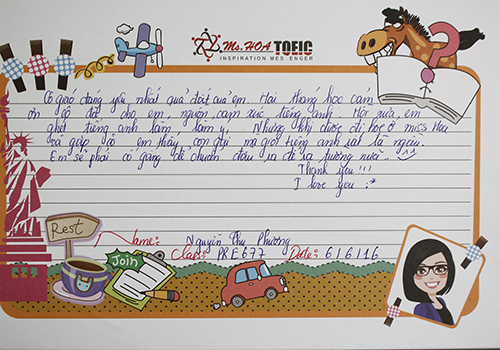 Ms. HOA TOEIC
INSPIRATION MESSENGER
Cô giáo đáng yêu nhất quả đất của em. Hai tháng học cảm
ơn cô đã cho em nguồn cảm xúc tiếng anh. Hồi xưa em
ghét tiếng anh lắm lắm ý. Nhưng khi được đi học ở miss Hoa
và gặp cô em thấy con gái mà giỏi tiếng anh rất là ngầu.
Em sẽ phải cố gắng để chuẩn đầu ra để ra trường nữa. ^^
Thank you!!!
I love you :*
Rest
Join
Name: Nguyễn Thu Phương
Class: PRE677 Date: 6/6/16